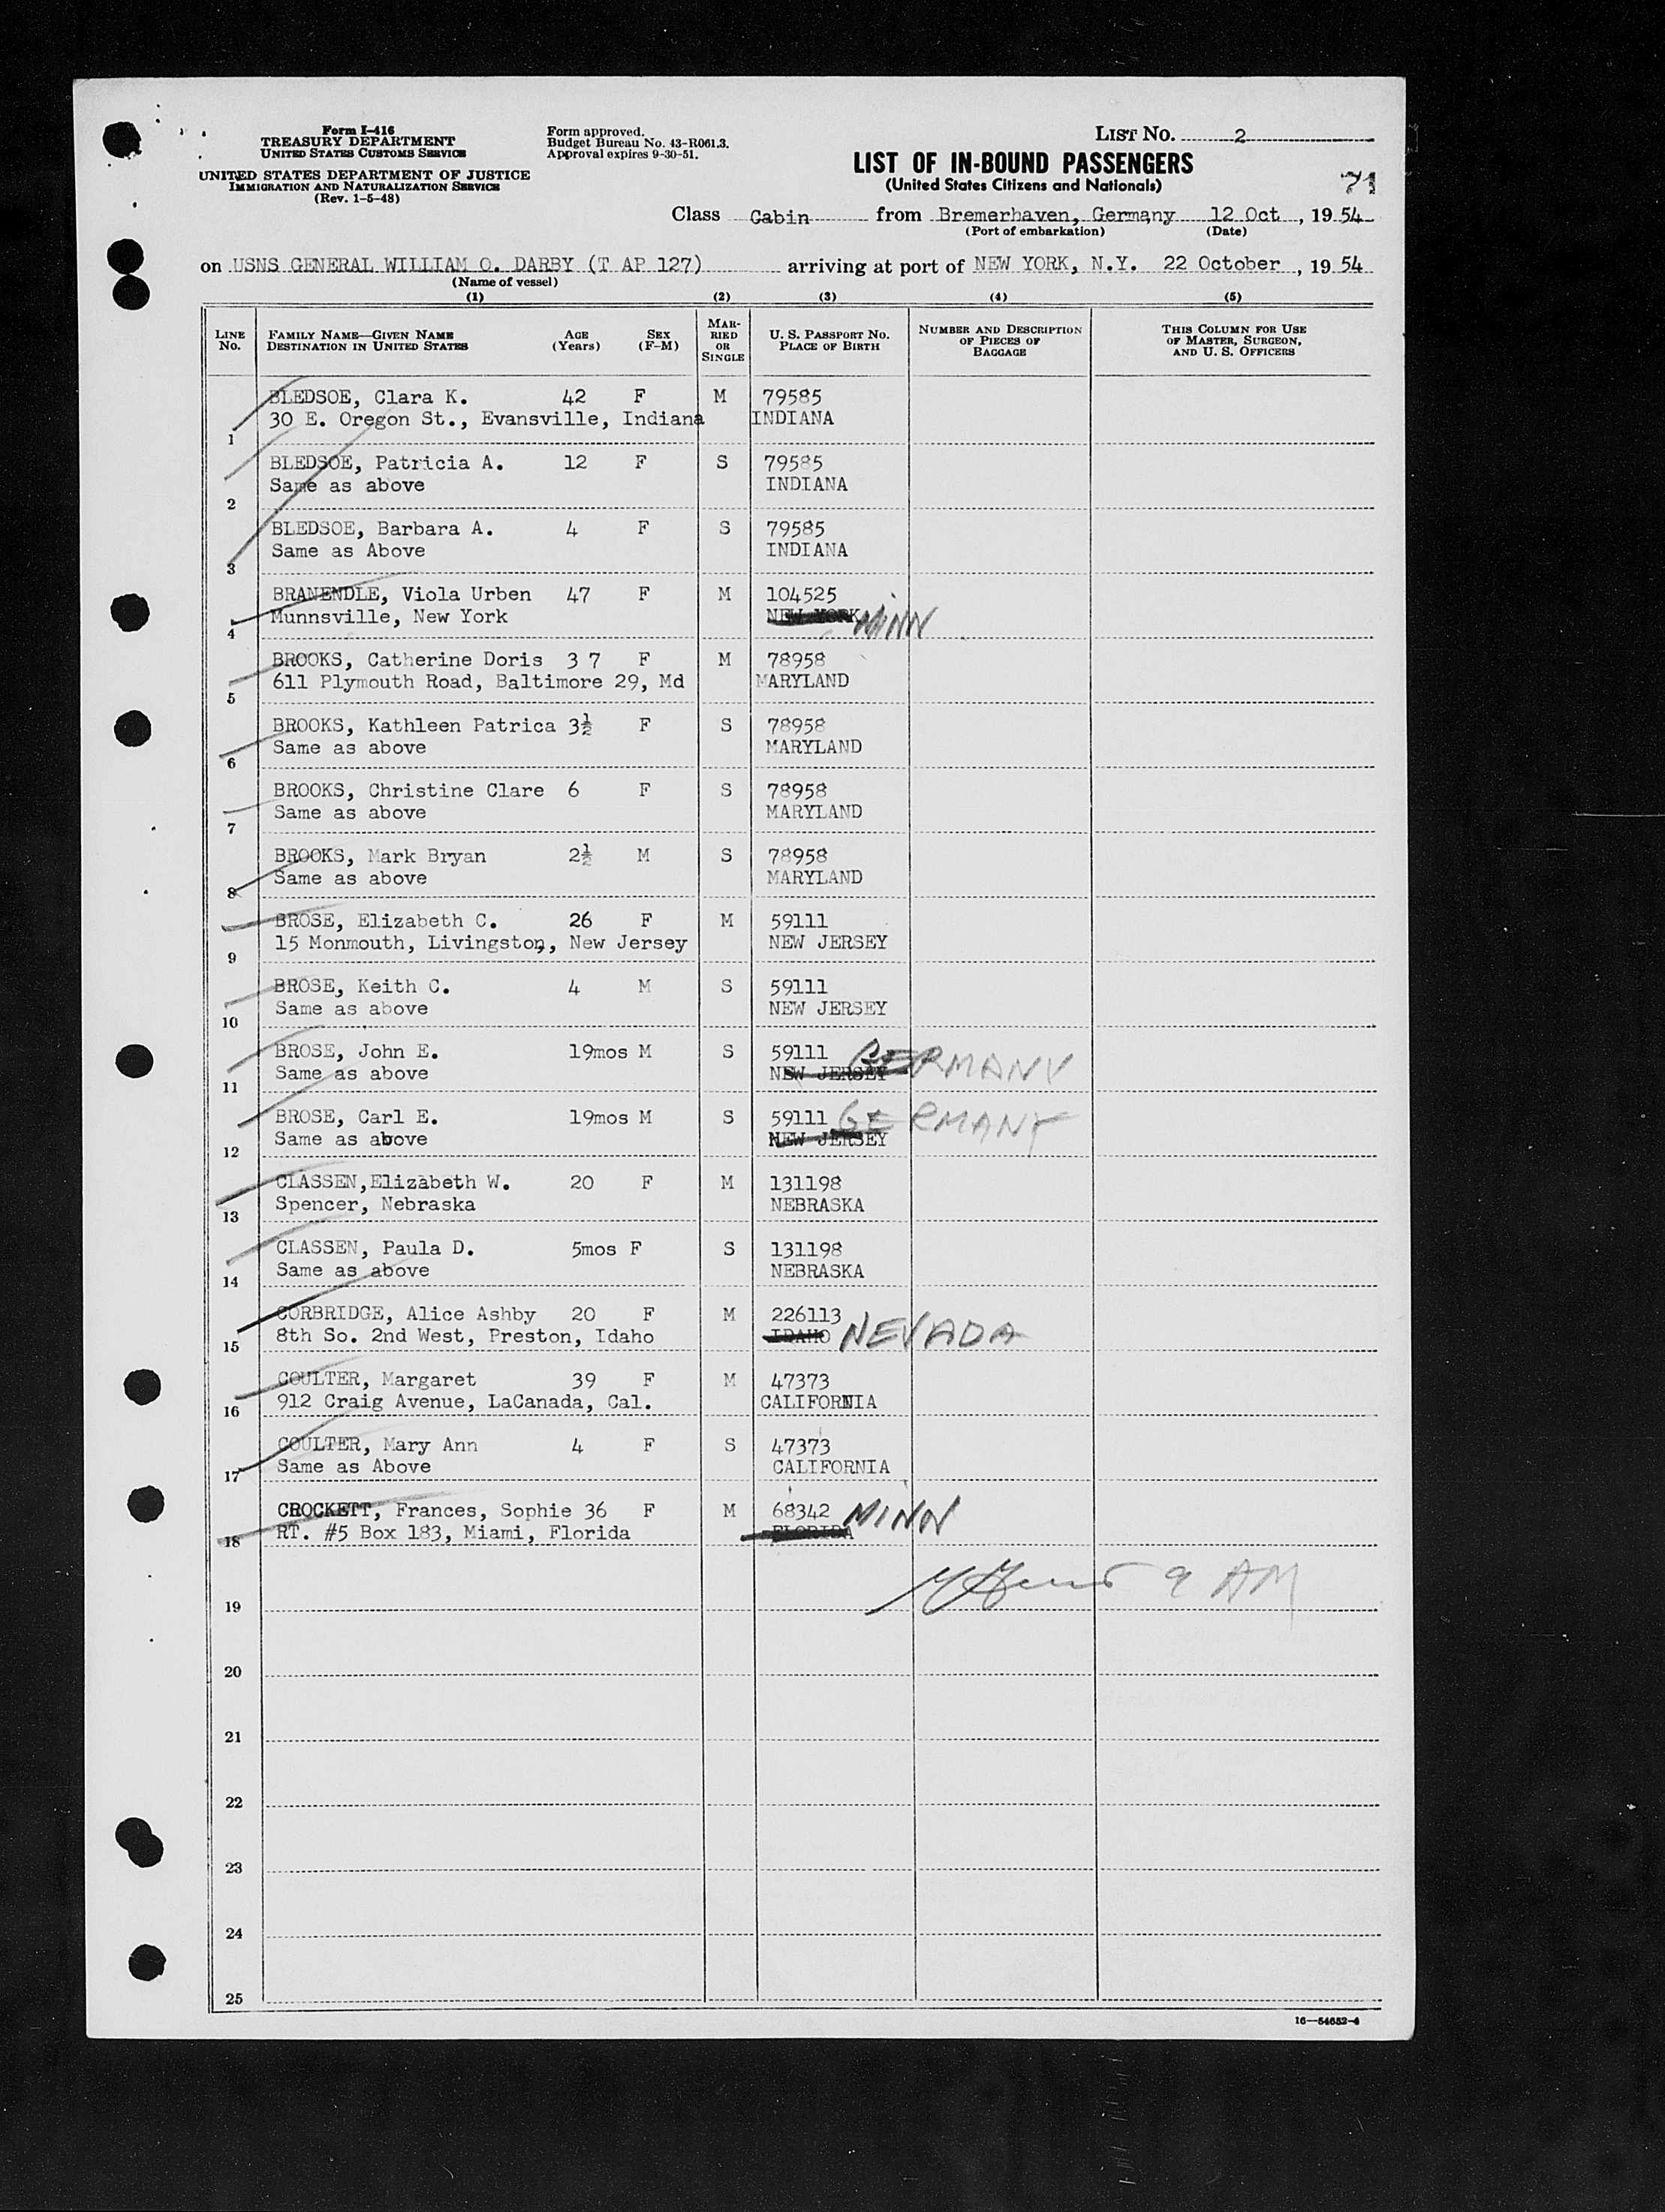 Form I-416
TREASURY DEPARTMENT
UNITED STATES CUSTOMS SERVICE
UNITED STATES DEPARTMENT OF JUSTICE
IMMIGRATION AND NATURALIZATION SERVICE
(Rev. 1-5-48)
Form approved.
Budget Bureau No. 43-R061.3.
Approval expires 9-30-51.
LIST No. 2
LIST OF IN-BOUND PASSENGERS
(United States Citizens and Nationals)
71
Class Cabin from Bremerhaven, Germany 12 Oct, 1954
(Port of embarkation) (Date)
on USNS GENERAL WILLIAM O. DARBY (T AP 127) arriving at port of NEW YORK, N.Y. 22 October, 1954
(Name of vessel)
(1) (2) (3) (4) (5)
LINE No. FAMILY NAME—GIVEN NAME DESTINATION IN UNITED STATES AGE (Years) SEX (F-M) MARRIED OR SINGLE U. S. PASSPORT No. PLACE OF BIRTH NUMBER AND DESCRIPTION OF PIECES OF BAGGAGE THIS COLUMN FOR USE OF MASTER, SURGEON, AND U. S. OFFICERS
BLEDSOE, Clara K. 42 F M 79585
1 30 E. Oregon St., Evansville, Indiana INDIANA
BLEDSOE, Patricia A. 12 F S 79585
2 Same as above INDIANA
BLEDSOE, Barbara A. 4 F S 79585
3 Same as Above INDIANA
BRANENDLE, Viola Urben 47 F M 104525
4 Munnsville, New York NEW YORK MINN
BROOKS, Catherine Doris 3 7 F M 78958
5 611 Plymouth Road, Baltimore 29, Md MARYLAND
BROOKS, Kathleen Patrica 3½ F S 78958
6 Same as above MARYLAND
BROOKS, Christine Clare 6 F S 78958
7 Same as above MARYLAND
BROOKS, Mark Bryan 2½ M S 78958
8 Same as above MARYLAND
BROSE, Elizabeth C. 26 F M 59111
9 15 Monmouth, Livingston, New Jersey NEW JERSEY
BROSE, Keith C. 4 M S 59111
10 Same as above NEW JERSEY
BROSE, John E. 19mos M S 59111 GERMANY
11 Same as above NEW JERSEY
BROSE, Carl E. 19mos M S 59111 GERMANY
12 Same as above NEW JERSEY
CLASSEN,Elizabeth W. 20 F M 131198
13 Spencer, Nebraska NEBRASKA
CLASSEN, Paula D. 5mos F S 131198
14 Same as above NEBRASKA
CORBRIDGE, Alice Ashby 20 F M 226113
15 8th So. 2nd West, Preston, Idaho IDAHO NEVADA
COULTER, Margaret 39 F M 47373
16 912 Craig Avenue, LaCanada, Cal. CALIFORNIA
COULTER, Mary Ann 4 F S 47373
17 Same as Above CALIFORNIA
CROCKETT, Frances, Sophie 36 F M 68342 MINN
18 RT. #5 Box 183, Miami, Florida FLORIDA
9 AM
19
20
21
22
23
24
25
16—54652-4